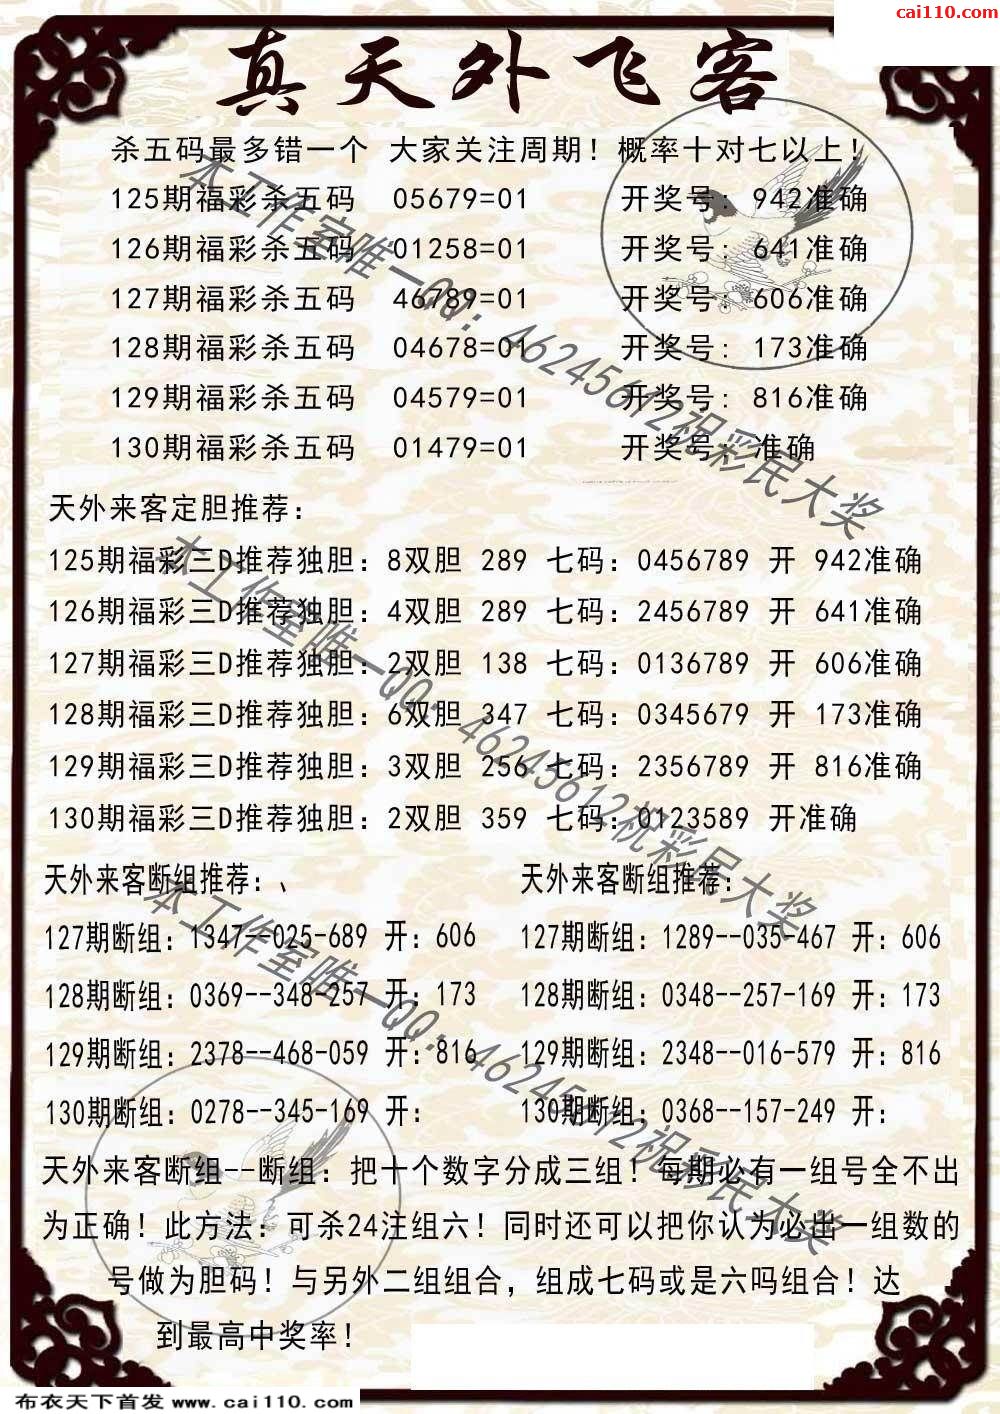 cai110.com
真天外飞客
杀五码最多错一个 大家关注周期！概率十对七以上！
125期福彩杀五码 05679=01 开奖号: 942准确
126期福彩杀五码 01258=01 开奖号: 641准确
127期福彩杀五码 46789=01 开奖号: 606准确
128期福彩杀五码 04678=01 开奖号: 173准确
129期福彩杀五码 04579=01 开奖号: 816准确
130期福彩杀五码 01479=01 开奖号: 准确
本工作室唯一QQ: 46245612祝彩民大奖
天外来客定胆推荐:
125期福彩三D推荐独胆: 8双胆 289 七码: 0456789 开 942准确
126期福彩三D推荐独胆: 4双胆 289 七码: 2456789 开 641准确
127期福彩三D推荐独胆: 2双胆 138 七码: 0136789 开 606准确
128期福彩三D推荐独胆: 6双胆 347 七码: 0345679 开 173准确
129期福彩三D推荐独胆: 3双胆 256 七码: 2356789 开 816准确
130期福彩三D推荐独胆: 2双胆 359 七码: 0123589 开准确
本工作室唯一QQ: 46245612祝彩民大奖
天外来客断组推荐: 、 天外来客断组推荐:
127期断组: 1347--025-689 开: 606 127期断组: 1289--035-467 开: 606
128期断组: 0369--348-257 开: 173 128期断组: 0348--257-169 开: 173
129期断组: 2378--468-059 开: 816 129期断组: 2348--016-579 开: 816
130期断组: 0278--345-169 开: 130期断组: 0368--157-249 开:
本工作室唯一QQ: 46245612祝彩民大奖
天外来客断组--断组: 把十个数字分成三组！每期必有一组号全不出
为正确！此方法: 可杀24注组六！同时还可以把你认为必出一组数的
号做为胆码！与另外二组组合，组成七码或是六吗组合！达
到最高中奖率！
布衣天下首发 www.cai110.com